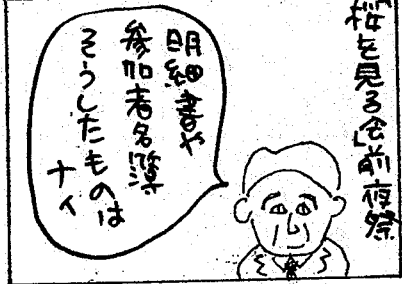 「桜を見る会」前夜祭
明細書や
参加者名簿
そうしたものは
ナイ